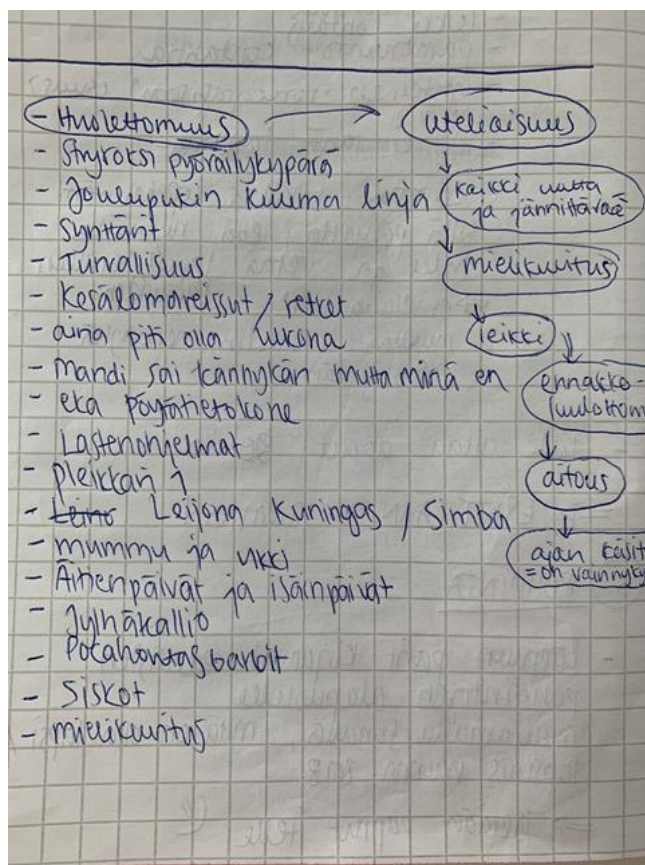 - Huolettomuus
- Styroksi pyöräilykypärä
- Joulupukin kuuma linja
- Synttärit
- Turvallisuus
- Kesälomareissut / retket
- aina piti olla ulkona
- Mandi sai kännykän mutta minä en
- eka pöytätietokone
- Lastenohjelmat
- pleikkari 1
- Leijona Kuningas / Simba
- mummu ja ukki
- Äitienpäivät ja isäinpäivät
- Jylhäkallio
- Pocahontas barbit
- Siskot
- mielikuvitus
uteliaisuus
kaikki uutta
ja jännittävää
mielikuvitus
leikki
ennakko-
luulottom
aitous
ajan käsit
= on vain nyky